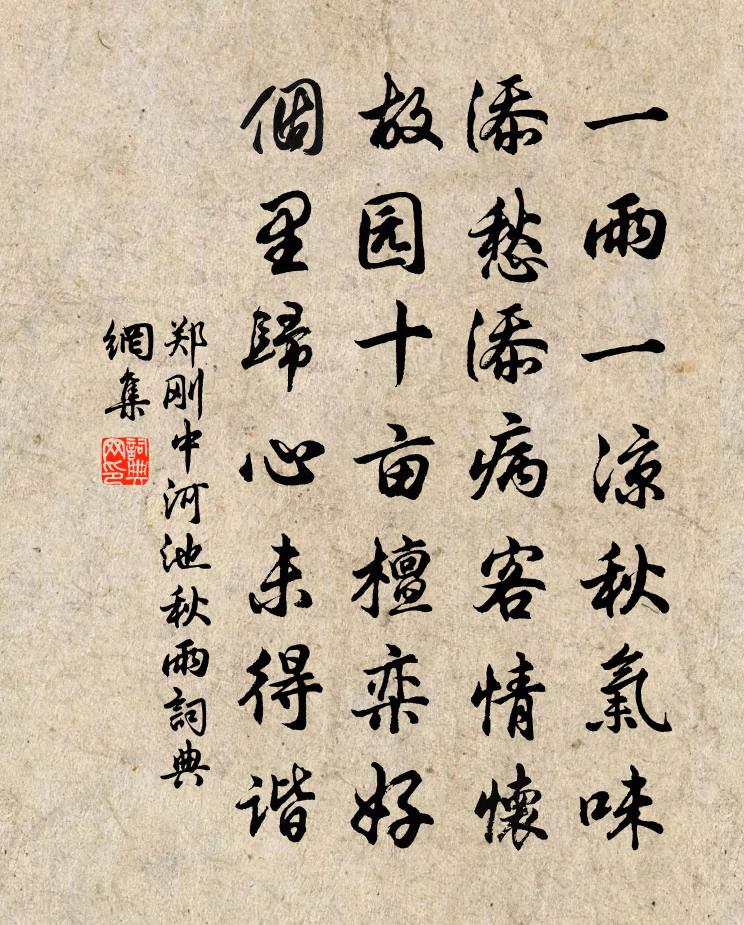 一雨一凉秋氣味
添愁添病客情懷
故园十亩檀栾好
個里歸心未得谐
郑刚中河池秋雨詞典
網集
詞典
网印